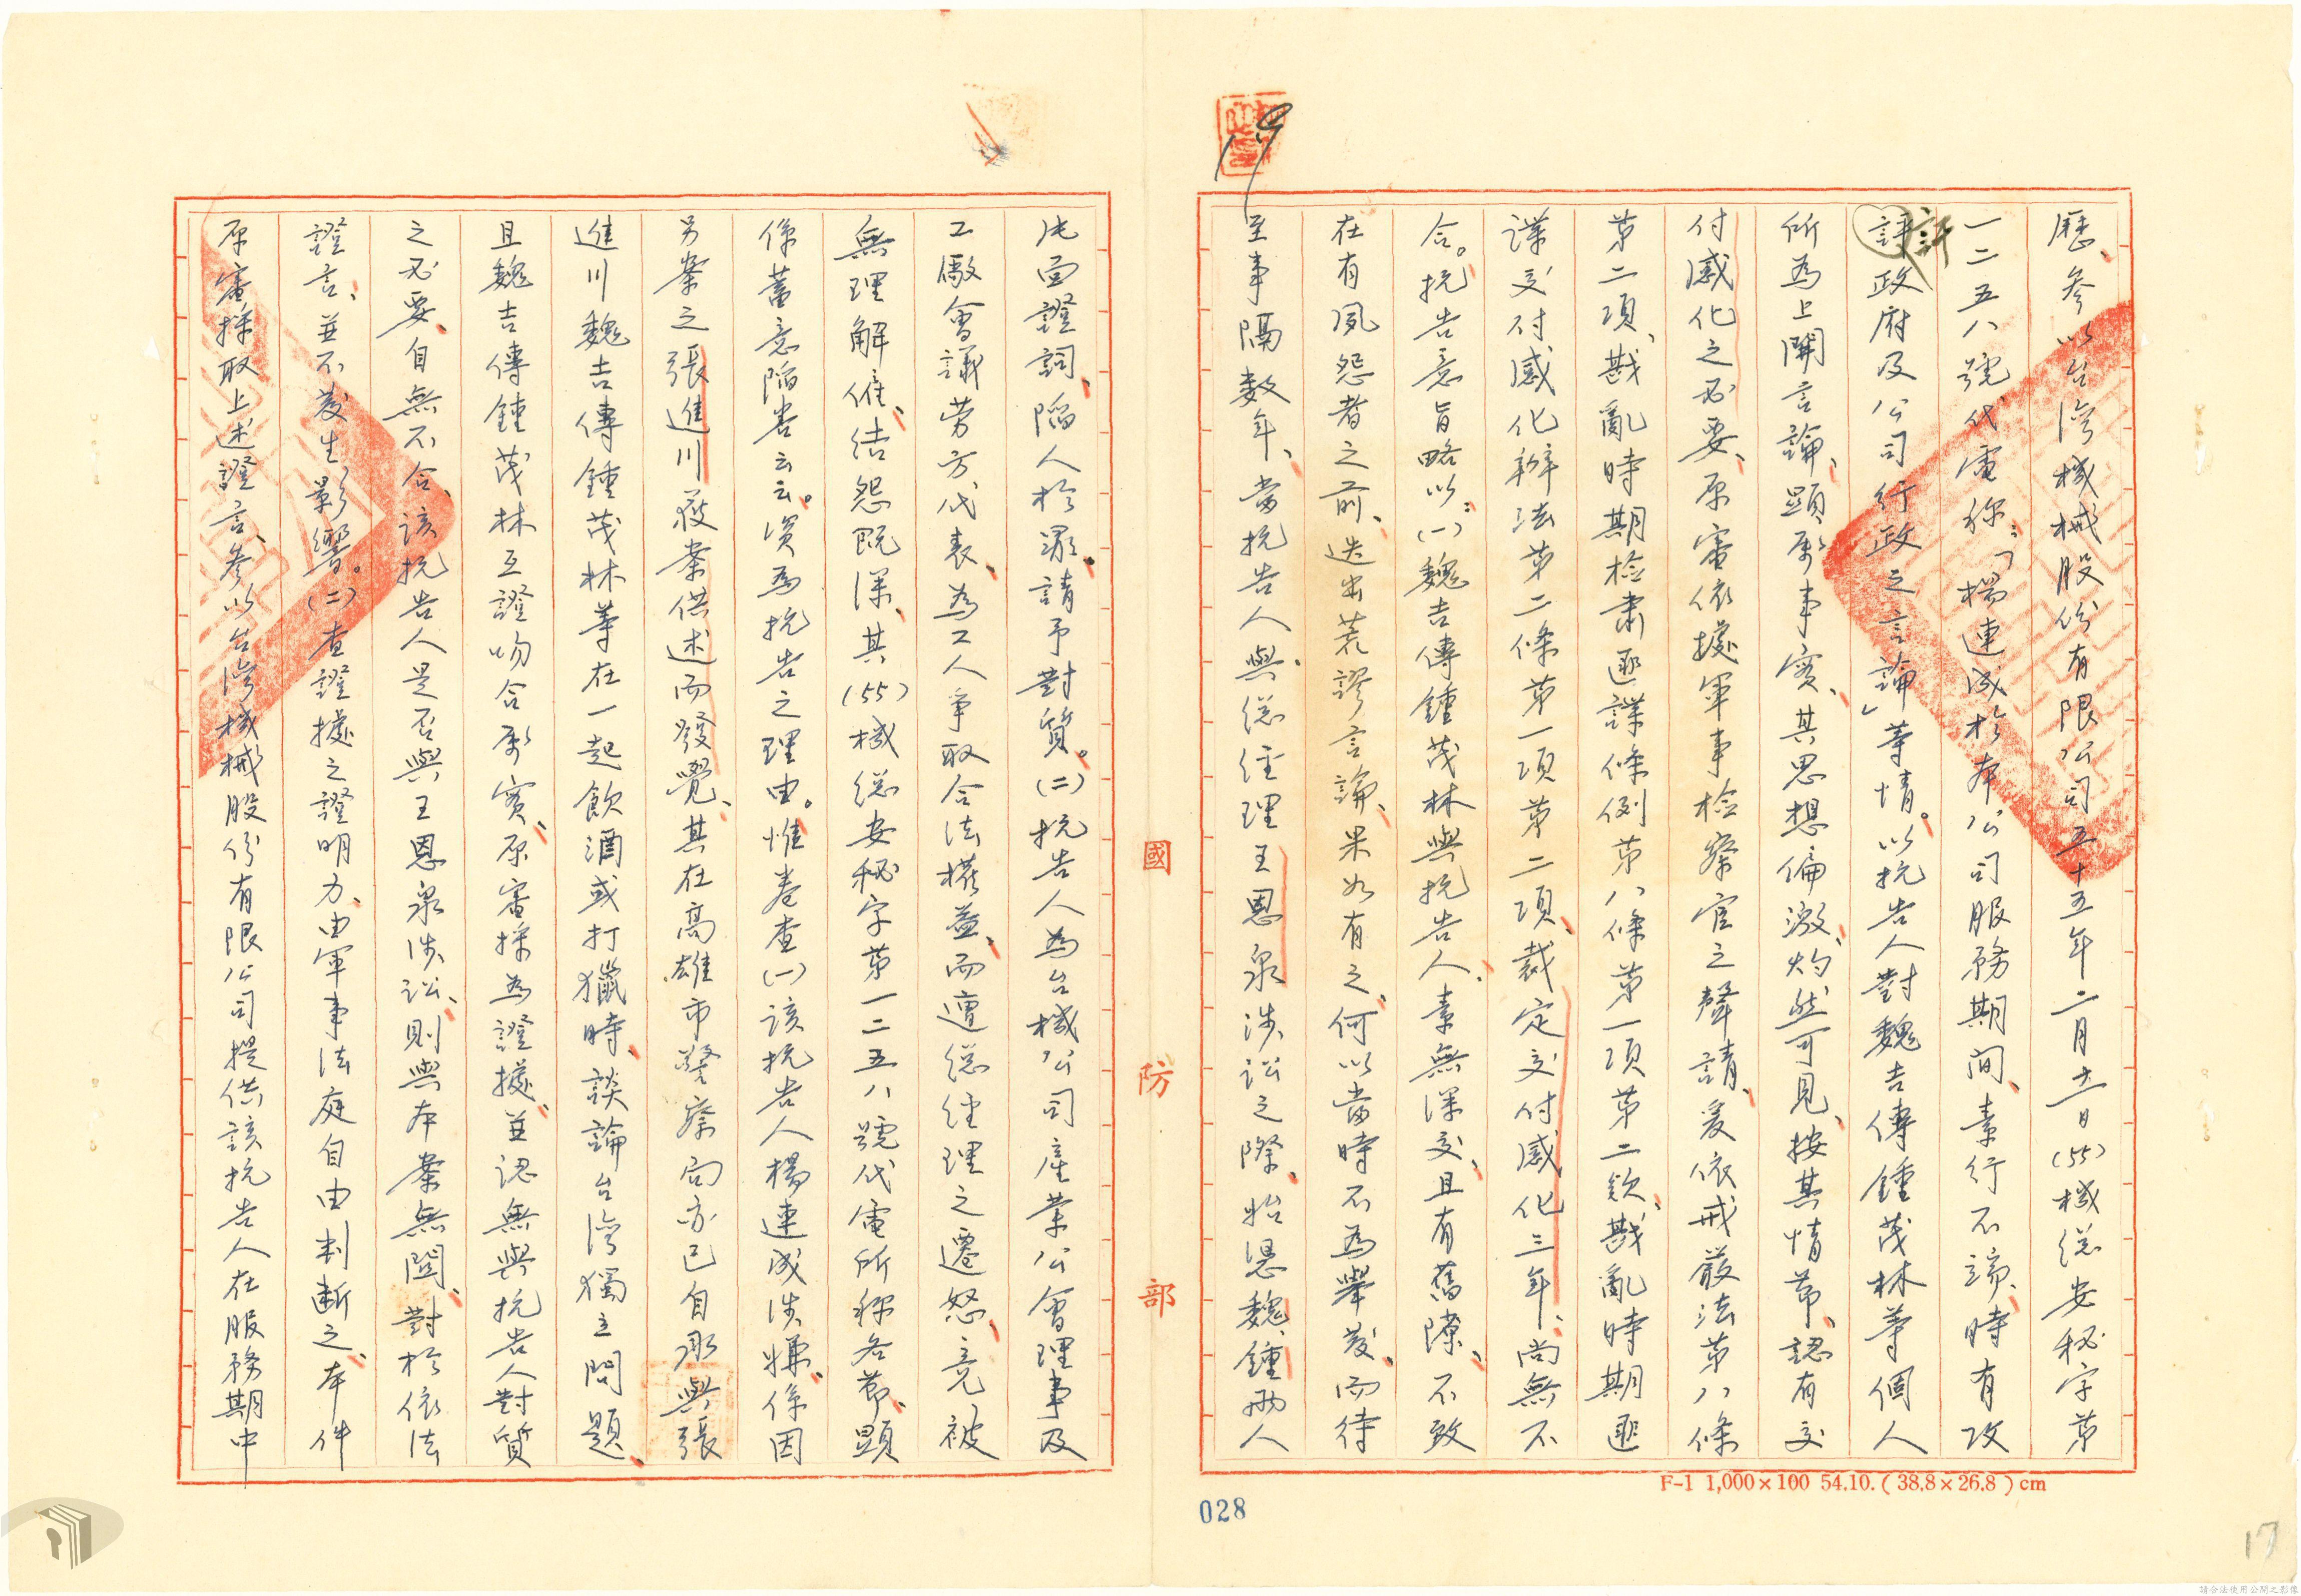 歷、參以台灣機械股份有限公司五十五年二月十一日(55)機總安秘字第
一二五八號代電称：「楊連成於本公司服務期間、素行不諦、時有攻
訐政府及公司行政之言論」等情。以抗告人對魏吉傳鍾茂林等個人
所為上開言論、顯屬事實、其思想偏激、灼然可見、按其情節、認有交
付感化之必要、原審依據軍事檢察官之聲請、爰依戒嚴法第八條
第二項、戡亂時期檢肅匪諜條例第八條第一項第二款、戡亂時期匪
諜交付感化辦法第二條第一項第二項、裁定交付感化三年、尚無不
合。抗告意旨略以：(一)魏吉傳鍾茂林與抗告人、素無深交、且有舊隙、不致
在有夙怨者之前、迭出荒謬言論、果如有之、何以當時不為舉發、而待
至事隔數年、當抗告人與總經理王恩泉涉訟之際、始慂魏、鍾兩人
出面證詞、陷人於罪、請予對質。(二)抗告人為台機公司產業公會理事及
工廠會議勞方代表、為工人爭取合法權益、而遭總經理之遷怒、竟被
無理解僱、結怨既深、其(55)機總安秘字第一二五八號代電所称各節、顯
係蓄意陷害云云。資為抗告之理由。惟卷查(一)該抗告人楊連成涉嫌、係因
另案之張進川叛案供述而發覺、其在高雄市警察局亦已自承與張
進川魏吉傳鍾茂林等在一起飲酒或打獵時、談論台灣獨立問題、
且魏吉傳鍾茂林互證吻合屬實、原審採為證據、並認無與抗告人對質
之必要、自無不合、該抗告人是否與王恩泉涉訟、則與本案無關、對於依法
證言、並不發生影響。(二)查證據之證明力、由軍事法庭自由判斷之、本件
原審採取上述證言、參以台灣機械股份有限公司提供該抗告人在服務期中
國防部
F-1 1,000×100 54.10.(38.8×26.8)cm
028
17
19
請合法使用公開之影像